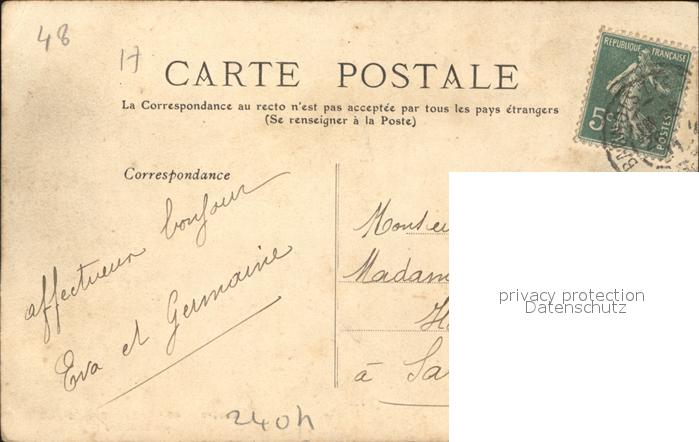 48
17
CARTE POSTALE
La Correspondance au recto n'est pas acceptée par tous les pays étrangers
(Se renseigner à la Poste)
REPUBLIQUE FRANÇAISE
5c
POSTES
Correspondance
affectueux bonjour
Eva et Germaine
Monsieu
Madam
H
à Sa
240h
privacy protection
Datenschutz